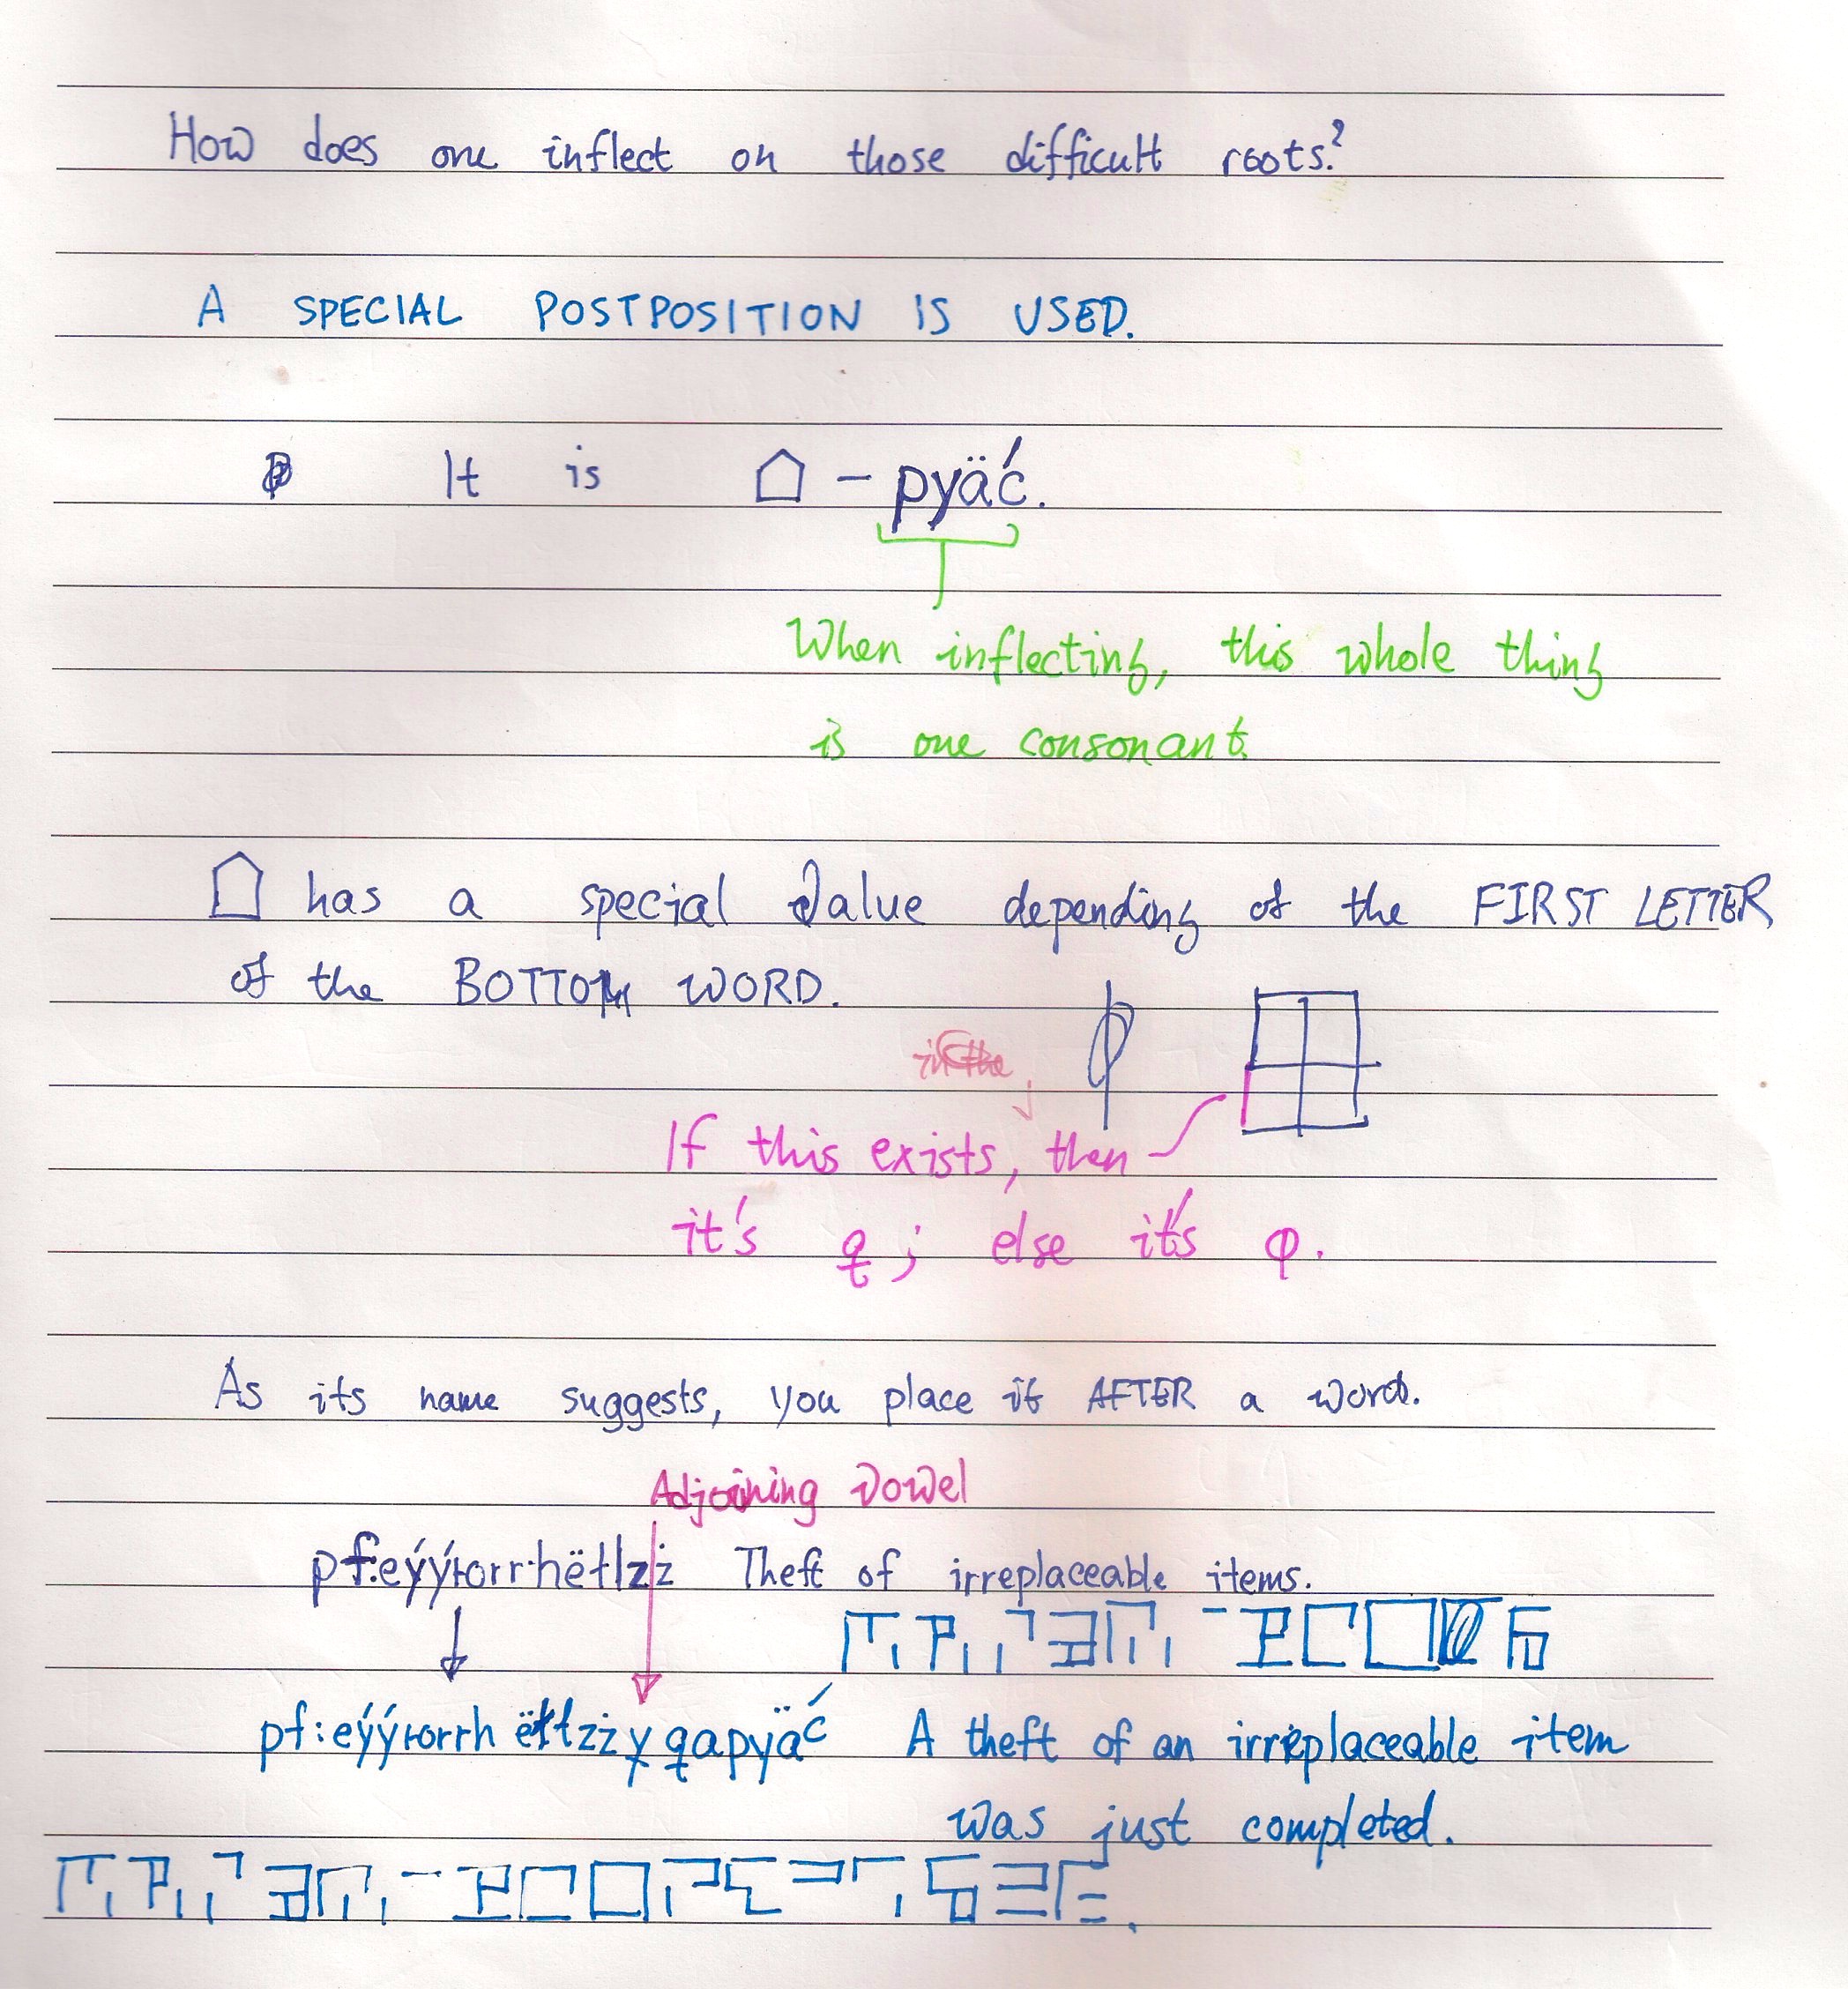 How does one inflect on those difficult roots?
A SPECIAL POSTPOSITION IS USED.
It is ⌂ - pyäć.
When inflecting, this whole thing
is one consonant.
⌂ has a special value depending of the FIRST LETTER
of the BOTTOM WORD.
If this exists, then
it's q; else it's φ.
As its name suggests, you place it AFTER a word.
Adjoining vowel
Theft of irreplaceable items.
qapyäć A theft of an irreplaceable item
was just completed.